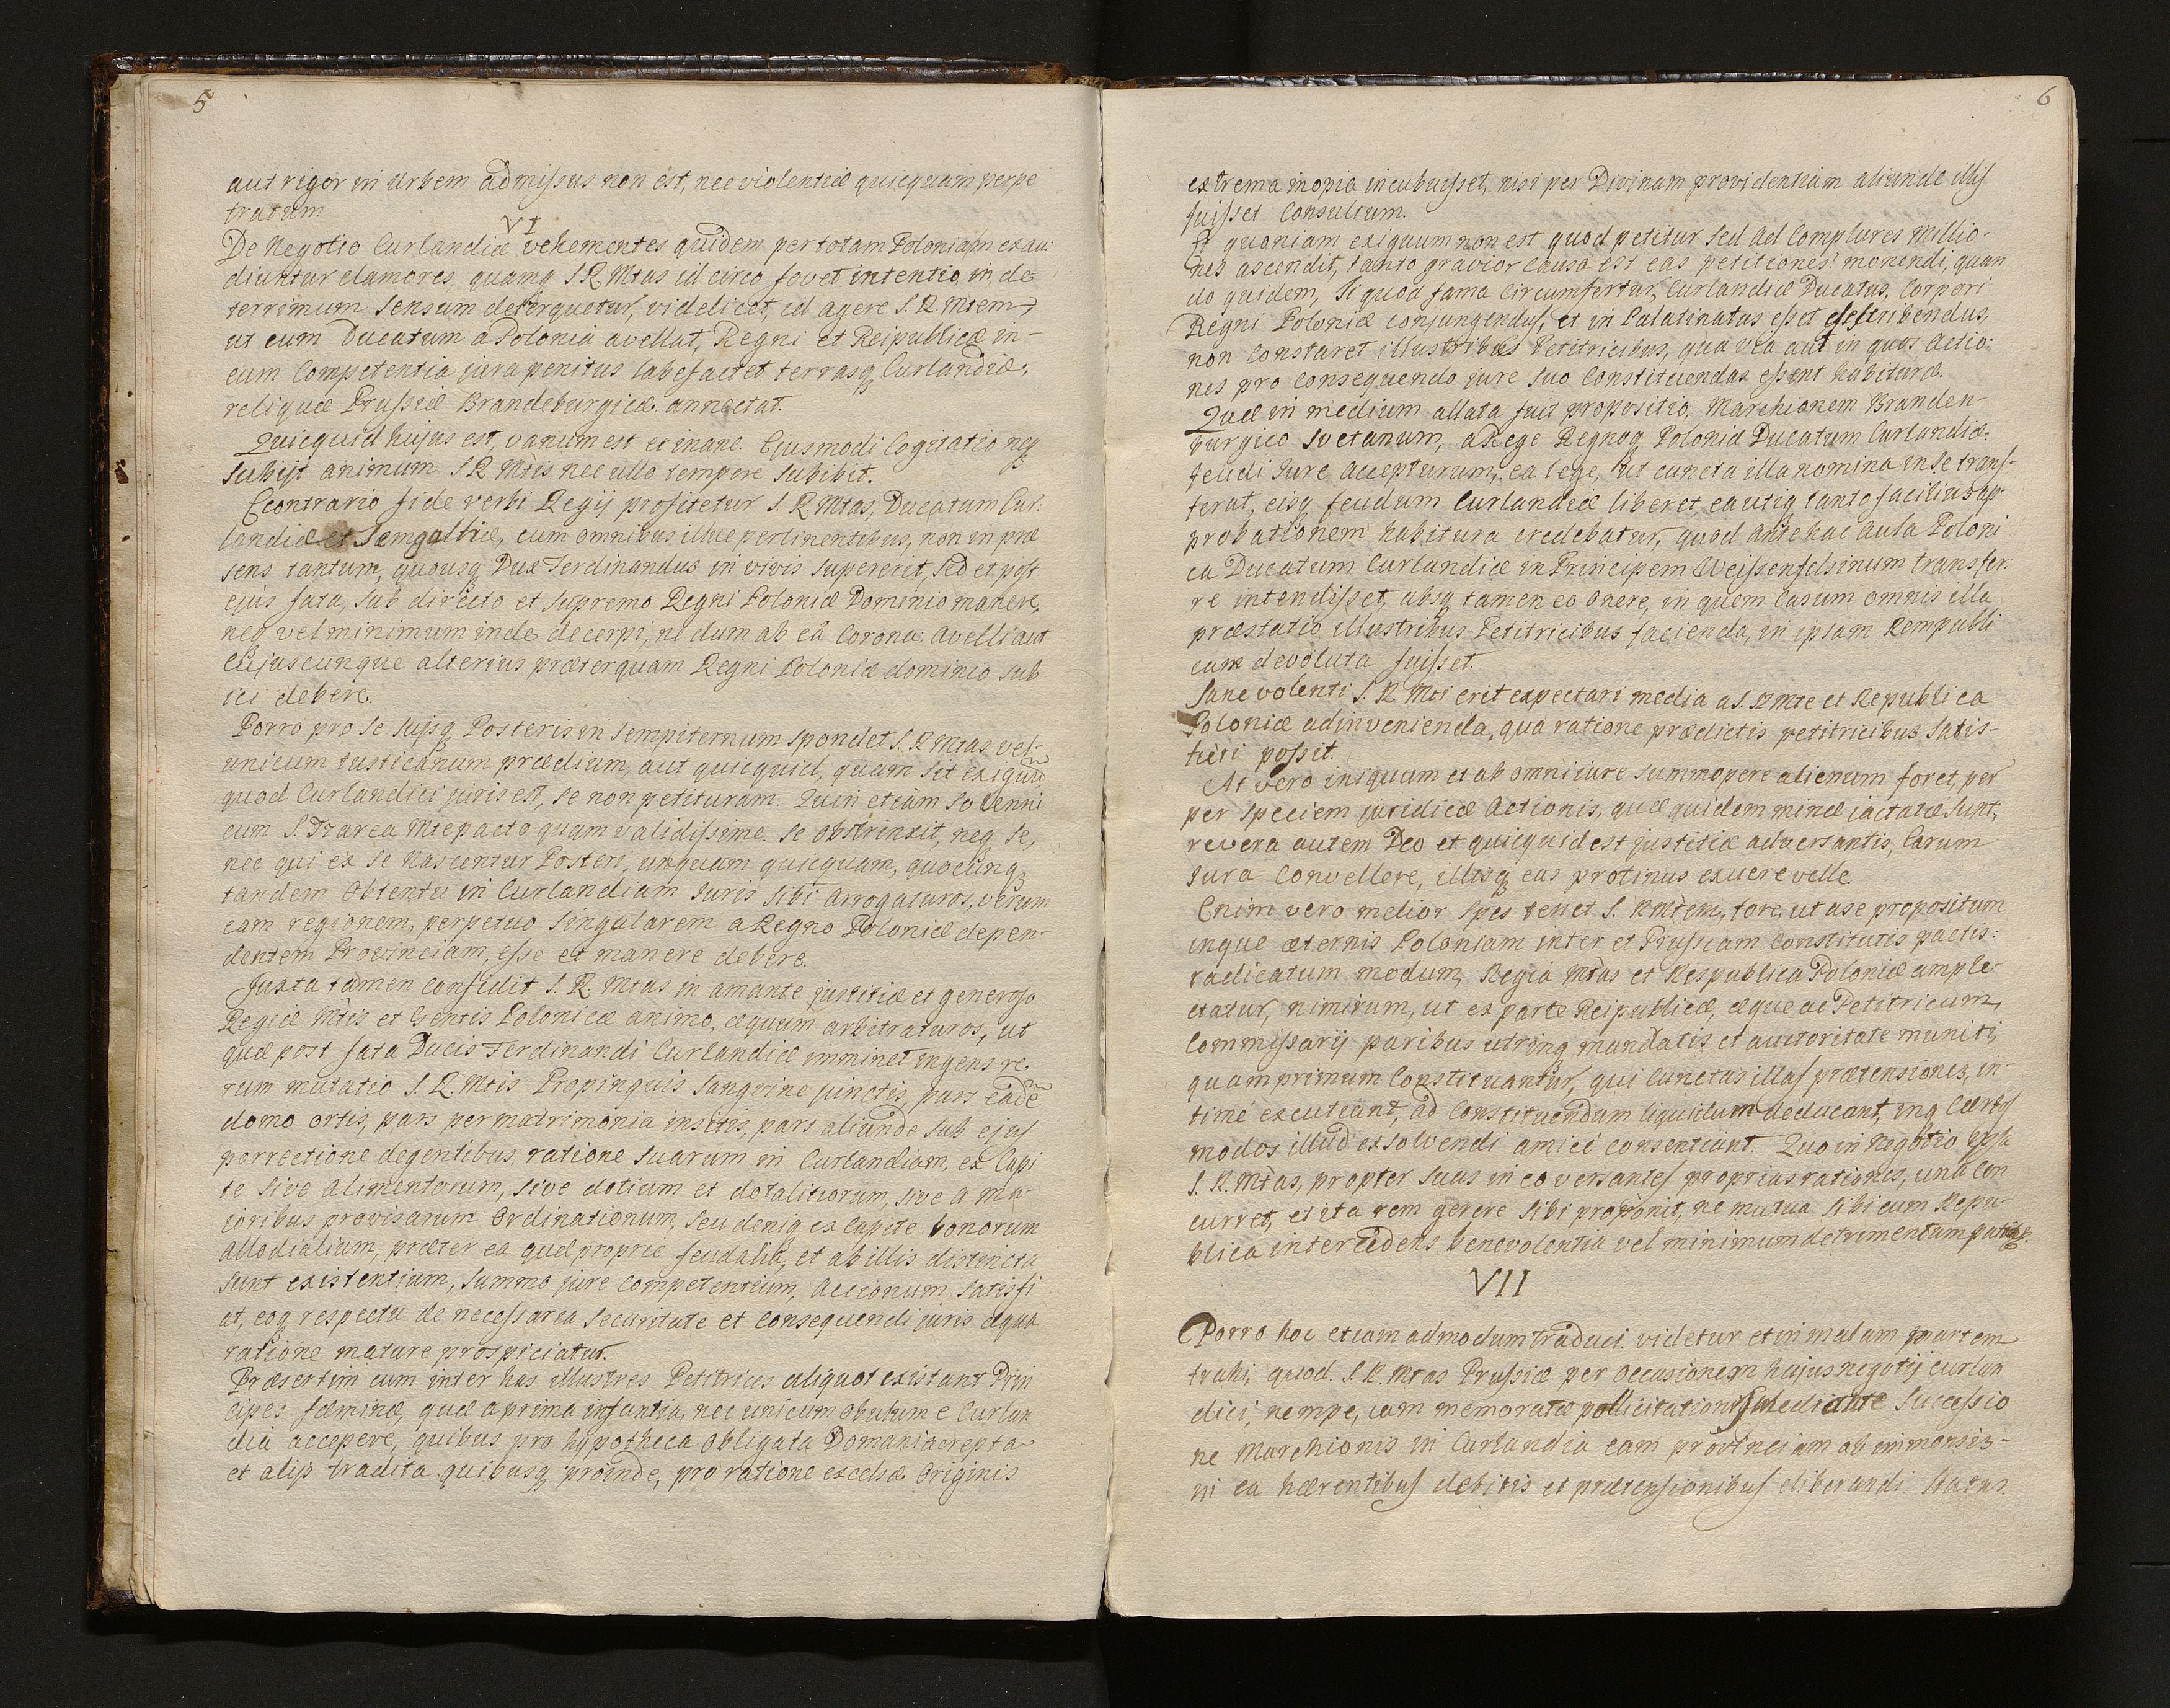 5
aut rigor in Urbem admissus non est, nec violentiæ quicquam perpe
tratum
VI
De Negotio Curlandiæ vehementes quidem per totam Poloniam exau:
diuntur clamores, quamq S R Mtas id circo fovet intentio, in de
terrimum sensum detorquetur, videlicet, id agere S. R Mtem,
ut eum Ducatum a Polonia avellat, Regni et Reipublicæ in-
eum Competentia jura penitus labefactet terrasq Curlandiæ,
reliquæ Prussiæ Brandeburgicæ annectat.
Quicquid hujus est, vanum est et inane. Ejusmodi Cogitatio neq
subijt animum S R Mtis nec ullo tempore subibit.
Econtrario fide verbi Regij profitetur S. R Mtas, Ducatum Cur:
landiæ et Semgalliæ, cum omnibus illuc pertinentibus, non in præ
sens tantum, quousq Dux Ferdinandus in vivis supererit, sed et post
ejus fata, sub directo et supremo Regni Poloniæ Dominio manere,
neq vel minimum inde decerpi, ne dum ab ea Corona avelli aut
Cujuscunque alterius præterquam Regni Poloniæ dominio sub
ici debere.
Porro pro se sujsq Posteris in sempiternum spondet S. R Mtas vel-
unicum rusticanum prædium, aut quicquid, quam sit exiguum
quod Curlandici juris est, se non petituram. Quin etiam solenni
cum S. Tzarea Mte pacto quam validissime se obstrinxit, neq se,
nec qui ex se Nascentur Posteri, unquam quicquam, quocunq
tandem Obtentu in Curlandiam Juris sibi Arrogaturos, verum
eam regionem, perpetuo singularem a Regno Poloniæ depen-
dentem Provinciam, esse et manere debere.
Juxta tamen confidit S. R. Mtas in amante justitiæ et generoso
Regiæ Mtis et Gentis Polonicæ animo, æquum arbitraturos, ut
quæ post fata Ducis Ferdinandi Curlandiæ imminet ingens re
rum mutatio S. R. Mtis Propinquis sanguine junctis, pars eade
domo ortis, pars per matrimonia insitis, pars aliunde sub ejus
porrectione degentibus, ratione suarum in Curlandiam, ex Capi
te sive Alimentorum, sive dotium et dotalitiorum, sive a Ma-
ioribus provisarum Ordinationum, seu deniq ex Capite bonorum
Allodialium, præter ea quæ proprie feudalia, et ab illis distincta
sunt existentium, summo jure Competentium, Accionum satisfi
at, eoq respectu de necessaria securitate et Consequendi juris æqua
ratione mature prospiciatur.
Præsertim cum inter has illustres Petitrices aliquot existant Prin
cipes fæminæ, quæ a prima infantia, nec unicum obulum e Curlan
dia accepere, quibus pro hypotheca obligata Domania erepta
et alijs tradita quibusq proinde, pro ratione excelsæ Originis
6
extrema inopia incubuisset, nisi per Divinam providentiam aliunde illis
fuisset Consultum.
Et quoniam exiguum non est quod petitur sed ad Complures Millio-
nes ascendit, tanto gravior causa est eas petitiones movendi, quan
do quidem, si quod fama Circumfertur, Curlandiæ Ducatus, Corpori
Regni Poloniæ conjungendus, et in Palatinatus esset describendus,
non Constaret illustribus Petitricibus, qua via aut in quos Actio:
nes pro Consequendo jure suo Constituendas essent habituræ.
Quæ in medium allata fuit propositio, Marchionem Branden-
burgico Svetanum, a Rege Regnoq Poloniæ Ducatum Curlandiæ
feudi Jure Accepturum, ea lege, ut cuncta illa nomina in se trans-
ferat, eisq feudum Curlandiæ liberet, ea utiq tanto facilius ap-
probationem habitura credebatur, quod Antehac Aula Poloni
ca Ducatum Curlandiæ in Principem Weissenfelsinum transfer
re intendisset, absq tamen eo Onere, in quem Casum omnis illa
præstatio illustribus Petitricibus facienda, in ipsam Rempubli
cam devoluta fuisset.
Sane volenti S. R Mti erit expectari media a S. R Mte et Republica
Poloniæ adinvenienda, qua ratione prædictis petitricibus Satis-
fieri possit.
At vero iniquum et ab omni iure summopere alienum foret, per
per speciem juridicæ Actionis, quæ quidem minæ jactatæ sunt,
revera autem Deo et quicquid est justitiæ adversantis, Carum
Jura Convellere, illisq eas protinus exuere velle
Enim vero melior spes tenet S. R Mtem, fore, ut a se propositum
inque æternis Poloniam inter et Prussiam Constitutis pactis:
radicatum modum, Regia Mtas et Respublica Poloniæ ample
ctatur, nimirum, ut ex parte Reipublicæ, æque ac Petitricum,
Commissarij paribus utrinq mandatis et auctoritate muniti,
quamprimum Constituantur, qui Cunctas illas prætensiones, in-
time excutiant, ad Constituendum liquidum deducant, inq Certos
modos illud exsolvendi amice consentiant. Quo in Negotio
S. R. Mtas, propter suas in eo versantes proprias rationes, una Con
curret, et ita rem gerere sibi proponit, ne mutua sibi cum Repu-
blica intercedens benevolentia vel minimum detrimentum patiatur.
VII
Porro hoc etiam admodum traduci videtur et in malam partem
trahi, quod S. R. Mtas Prussiæ per Occasionem hujus negotij Curlan
dici, nempe, cum memoratæ pollicitationis mediante Successio
ne Marchionis in Curlandia eam provinciam ab immensis-
in ea hærentibus debitis et prætensionibus eliberandi